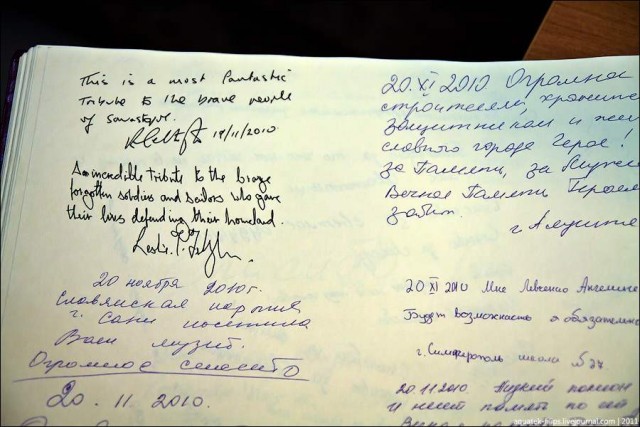 This is a most fantastic
Tribute to the brave people
of
19/11/2010
An incredible tribute to the brave
forgotten soldiers and sailors who gave
their lives defending their homeland.
20 ноября 2010г.
Славянская
г. посетила
Ваш музей.
Огромное
20. 11. 2010.
20. XI 2010 Огромна
строителям, храните
защитникам и
славного города Героя!
за Память, за
Вечная Память Героям
г. Алушта
20 XI 2010 Мне Левченко Ангелине
Будет возможность я обязательно
г. Симферополь школа №
20.11.2010. Низкий поклон
и
livejournal.com | 2011